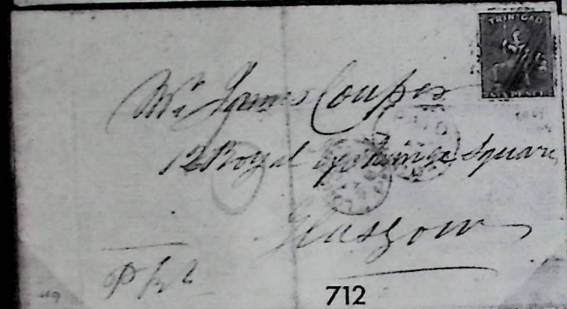 TRINIDAD
SIX PENCE
Mr. James Couper
12 Royal Exchange Square
Glasgow
712